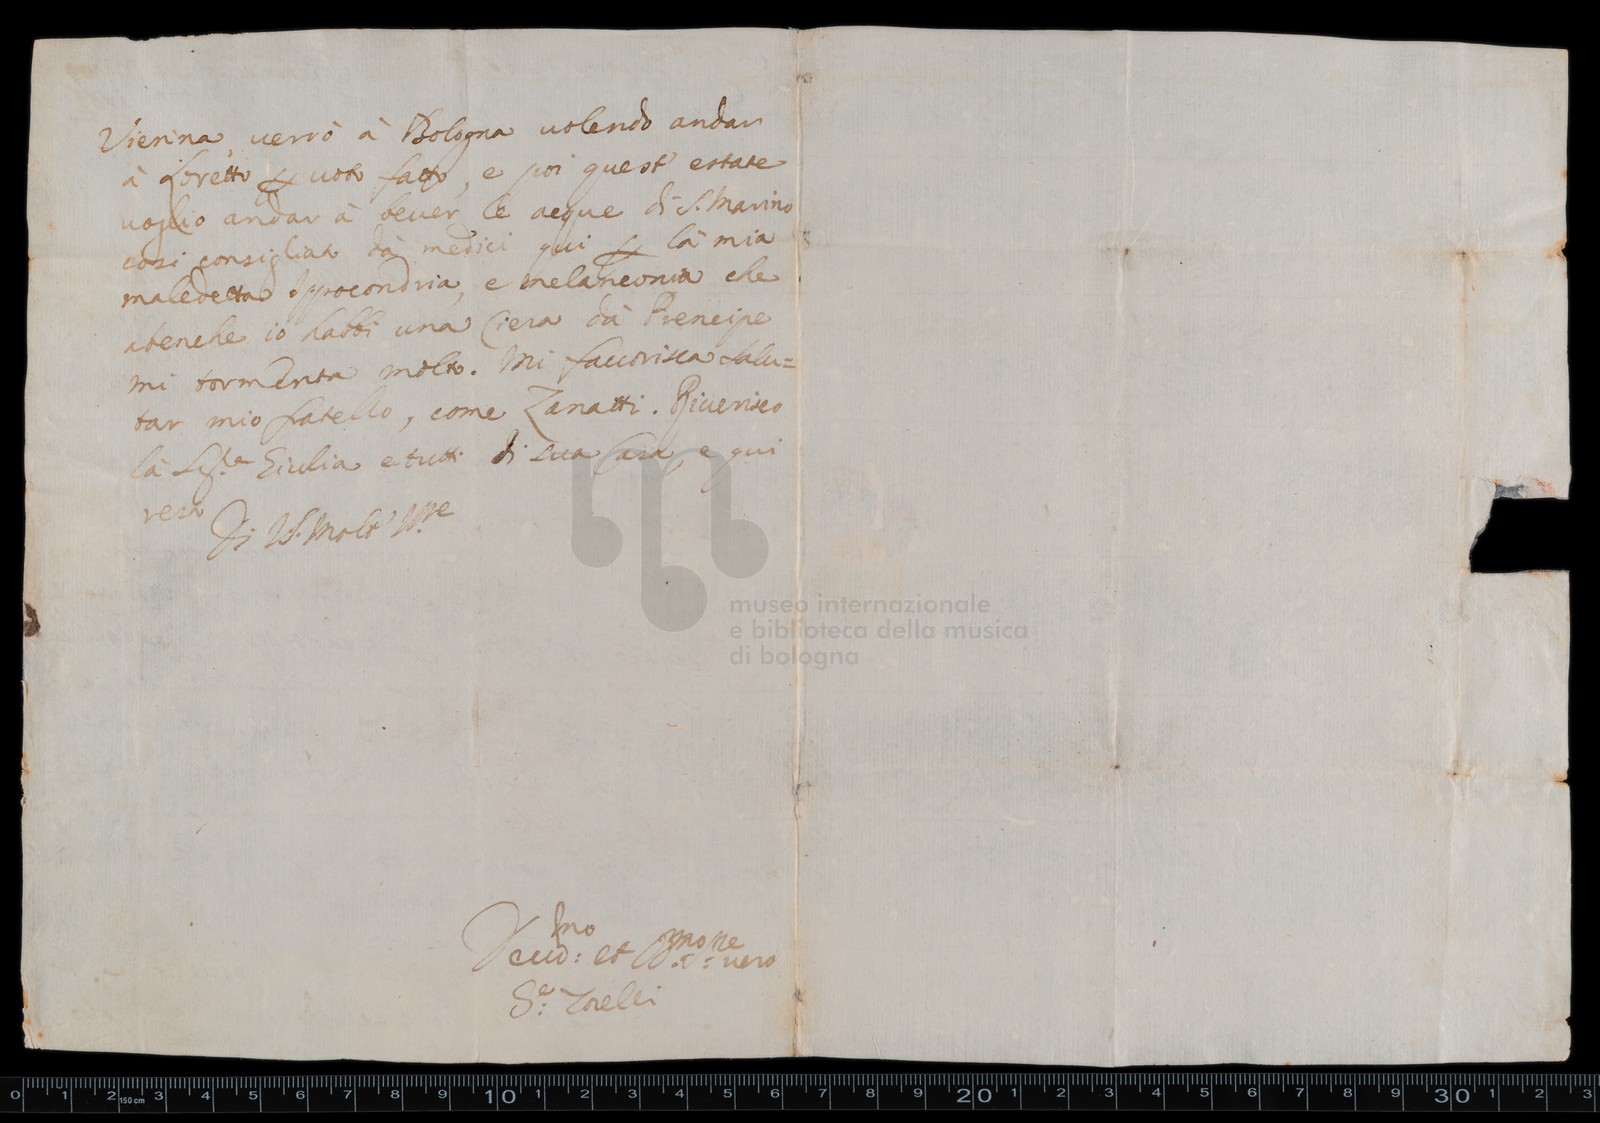 Vienna, verrò à Bologna volendo andar
à Loretto per voto fatto, e poi quest' estate
voglio andar à bever le acque di S. Marino
cosi consigliato dà medici qui per la mia
maledetta Ippocondria, e melanconia che
abenche io habbi una Ciera dà Prencipe
mi tormenta molto. Mi favorisca salu=
tar mio fratello, come Zanatti. Riverisco
la Sig.ra Giulia e tutti di sua Casa, e qui
resto
Di V.S. Molt' Ill.re
Devo.mo et vero
S.e: Torelli
museo internazionale
e biblioteca della musica
di bologna
0 1 2 150 cm 3 4 5 6 7 8 9 10 1 2 3 4 5 6 7 8 9 20 1 2 3 4 5 6 7 8 9 30 1 2 3